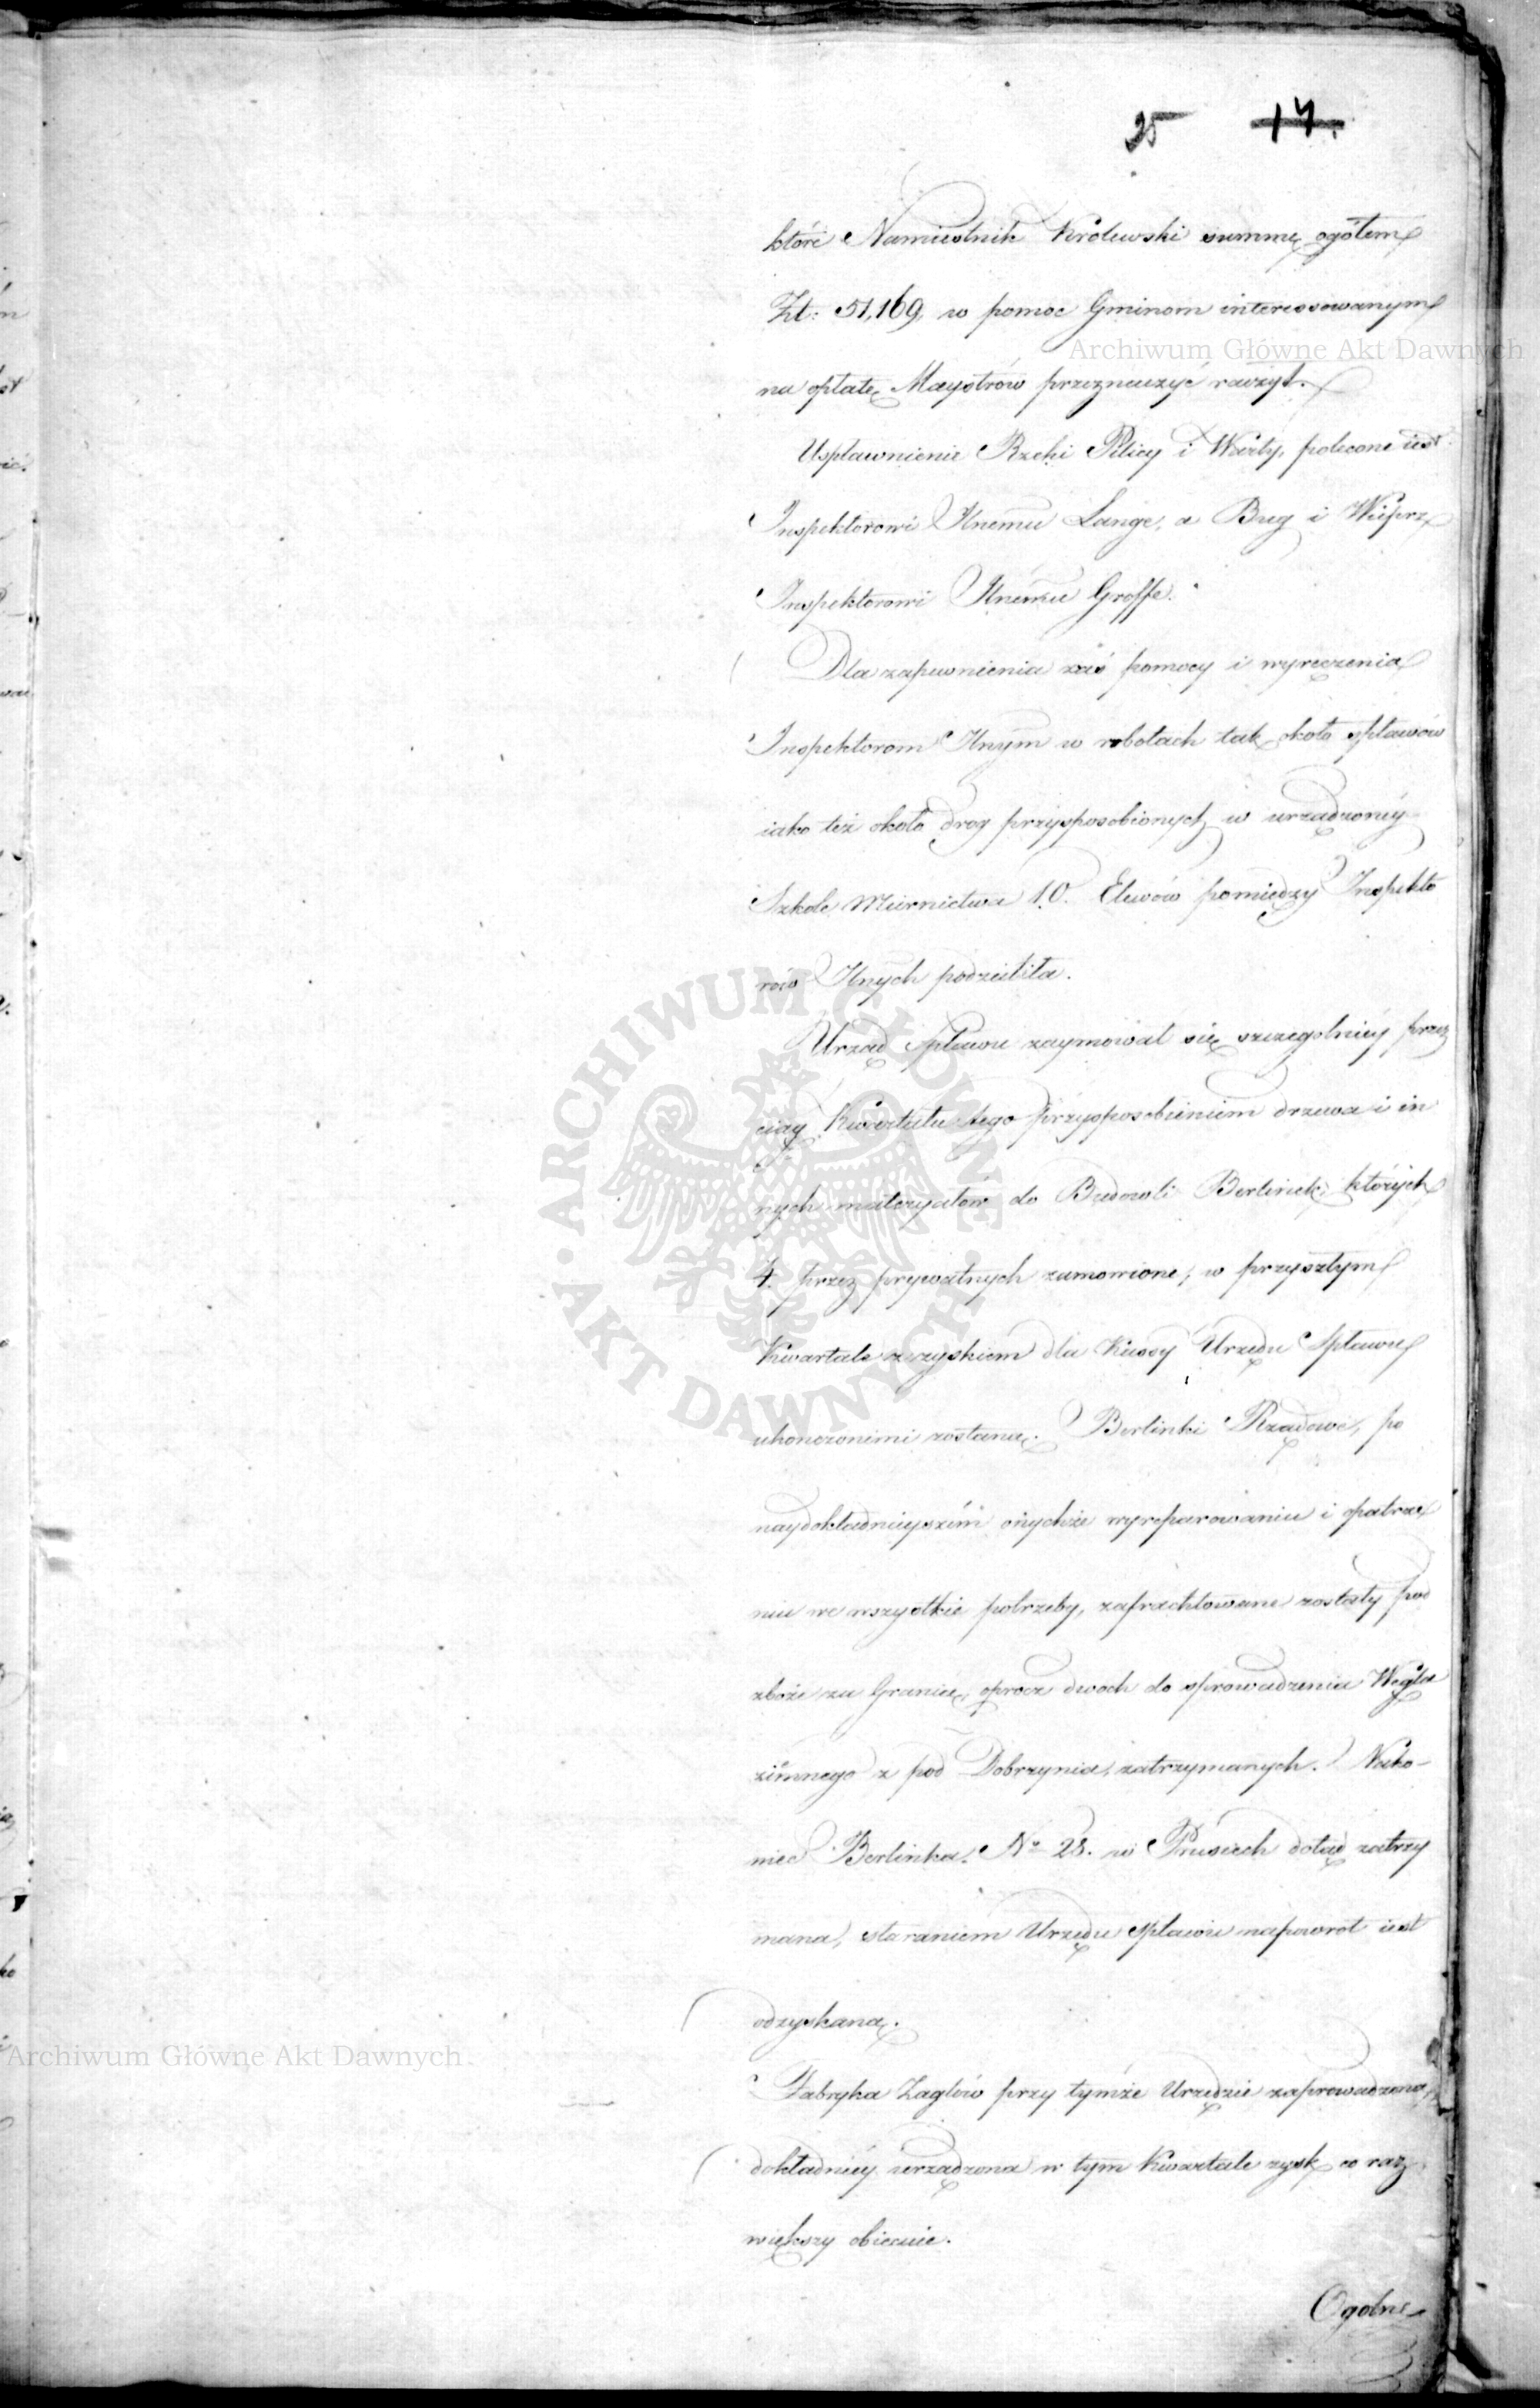 25 17.
któré Namiestnik Królewski summę ogółem
Zł: 51,169, w pomoc Gminom interessowanym
Archiwum Główne Akt Dawnych
na opłatę Maystrów przeznaczyć raczył.
Uspławnienie Rzeki Pilicy i Warty, polecone iest
Inspektorowi Jlnemu Lange, a Bug i Wieprz
Inspektorowi Jlnemu Groffe.
Dla zapewnienia zaś pomocy i wyręczenia
Inspektorom Jlnym w robotach tak około spławów
iako też około dróg przysposobionych w urządzonéy
Szkole Miernictwa 10. Elewów pomiędzy Inspekto
rów Jlnych podzieliła.
Urząd Spławu zaymował się szczegolniéy przez
ciąg Kwartału tego przysposobieniem drzewa i in
nych materyałów do Budowli Berlinek, których
4. przez prywatnych zamowione, w przyszłym
Kwartale z zyskiem dla Kassy Urzędu Spławu
ukonczonemi zostaną. Berlinki Rządowe, po
naydokładnieyszém onychże wyreparowaniu i opatrze
niu we wszystkie potrzeby, zafrachtowane zostały pod
zboże za Granicę, oprocz dwoch do sprowadzenia Węgla
ziemnego z pod Dobrzynia, zatrzymanych. Nako-
niec Berlinka No 28. w Prusiech dotąd zatrzy
mana, staraniem Urzędu Spławu napowrot iest
odzyskaną.
Archiwum Główne Akt Dawnych
Fabryka Żaglów przy tymże Urzędzie zaprowadzona,
dokładniéy urządzona w tym Kwartale zysk co raz
większy obiecuie.
Ogolne
ARCHIWUM GŁÓWNE AKT DAWNYCH